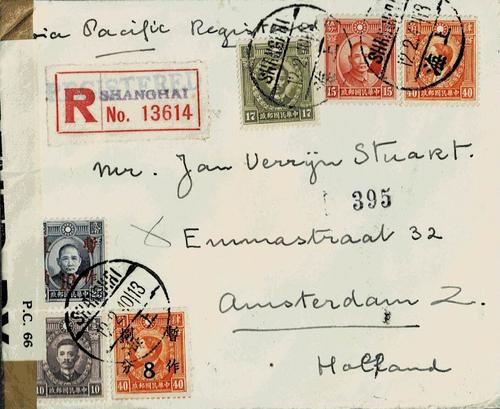 via Pacific Regist
REGISTERED
SHANGHAI
R No. 13614
17 17
中華民國郵政
15 15
中華民國郵政
40 40
中華民國郵政
SHANGHAI
上海
Mr. Jan Verrijn Stuart.
395
Emmastraat 32
Amsterdam Z.
Holland
P.C. 66
暫作
SHANGHAI
10 10
中華民國郵政
暫作
8
40 40
中華民國郵政